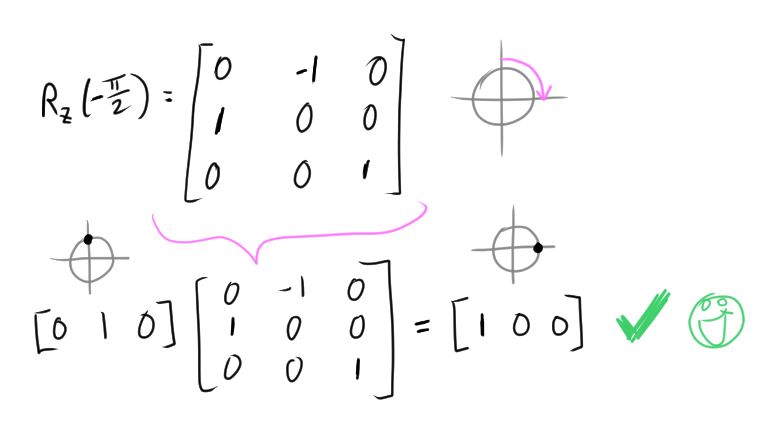 R_z(-π/2) = [0 -1 0
1 0 0
0 0 1]
[0 1 0] [0 -1 0
1 0 0
0 0 1] = [1 0 0]